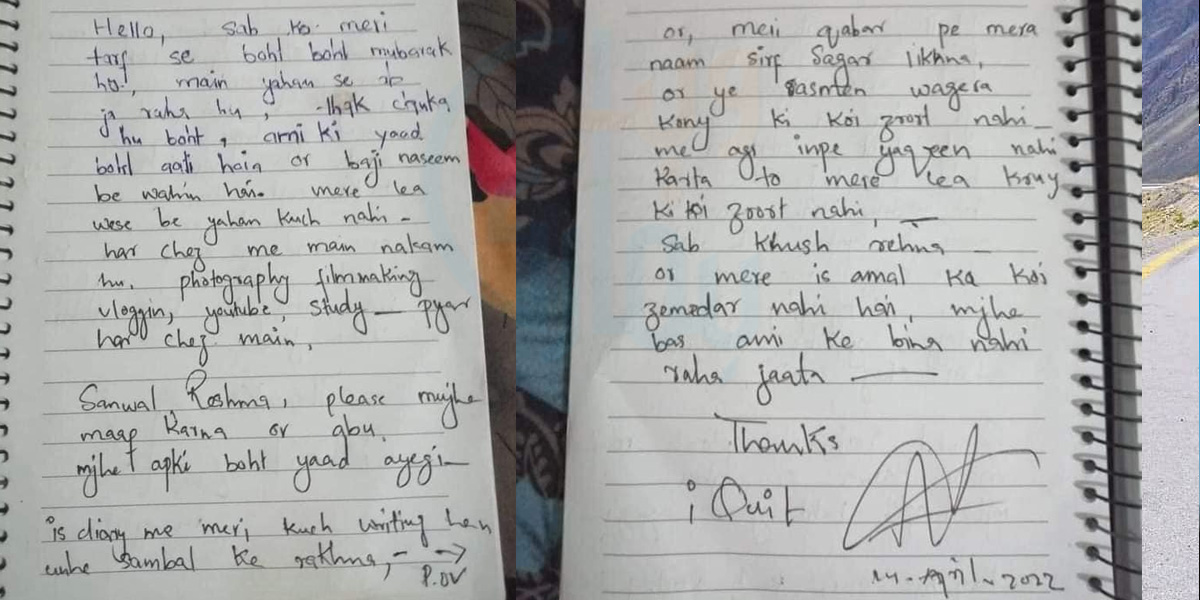 Hello, sab ko meri
tarf se boht boht mubarak
ho!, main yahan se ab
ja raha hu, thak chuka
hu boht, ami ki yaad
boht aati hain or baji naseem
be wahin han. mere lea
wese be yahan kuch nahi -
har chez me main nakam
hu. photography filmmaking
vloggin, youtube, study — pyar
har chez main,
Sanwal Reshma, please mujhe
maaf karna or abu.
mjhe apki boht yaad ayegi—
is diary me meri kuch writing han
unhe sambal ke rakhna, - →
P.OV
or, meri qabar pe mera
naam sirf Sagar likhna,
or ye wagera
kony ki koi zroot nahi _
me agr inpe yaqeen nahi
karta to mere lea kony
ki koi zroot nahi, —
Sab khush rehna —
or mere is amal ka koi
zemedar nahi han, mjhe
bas ami ke bina nahi
raha jaata ——
Thanks
i Quit
14-April-2022